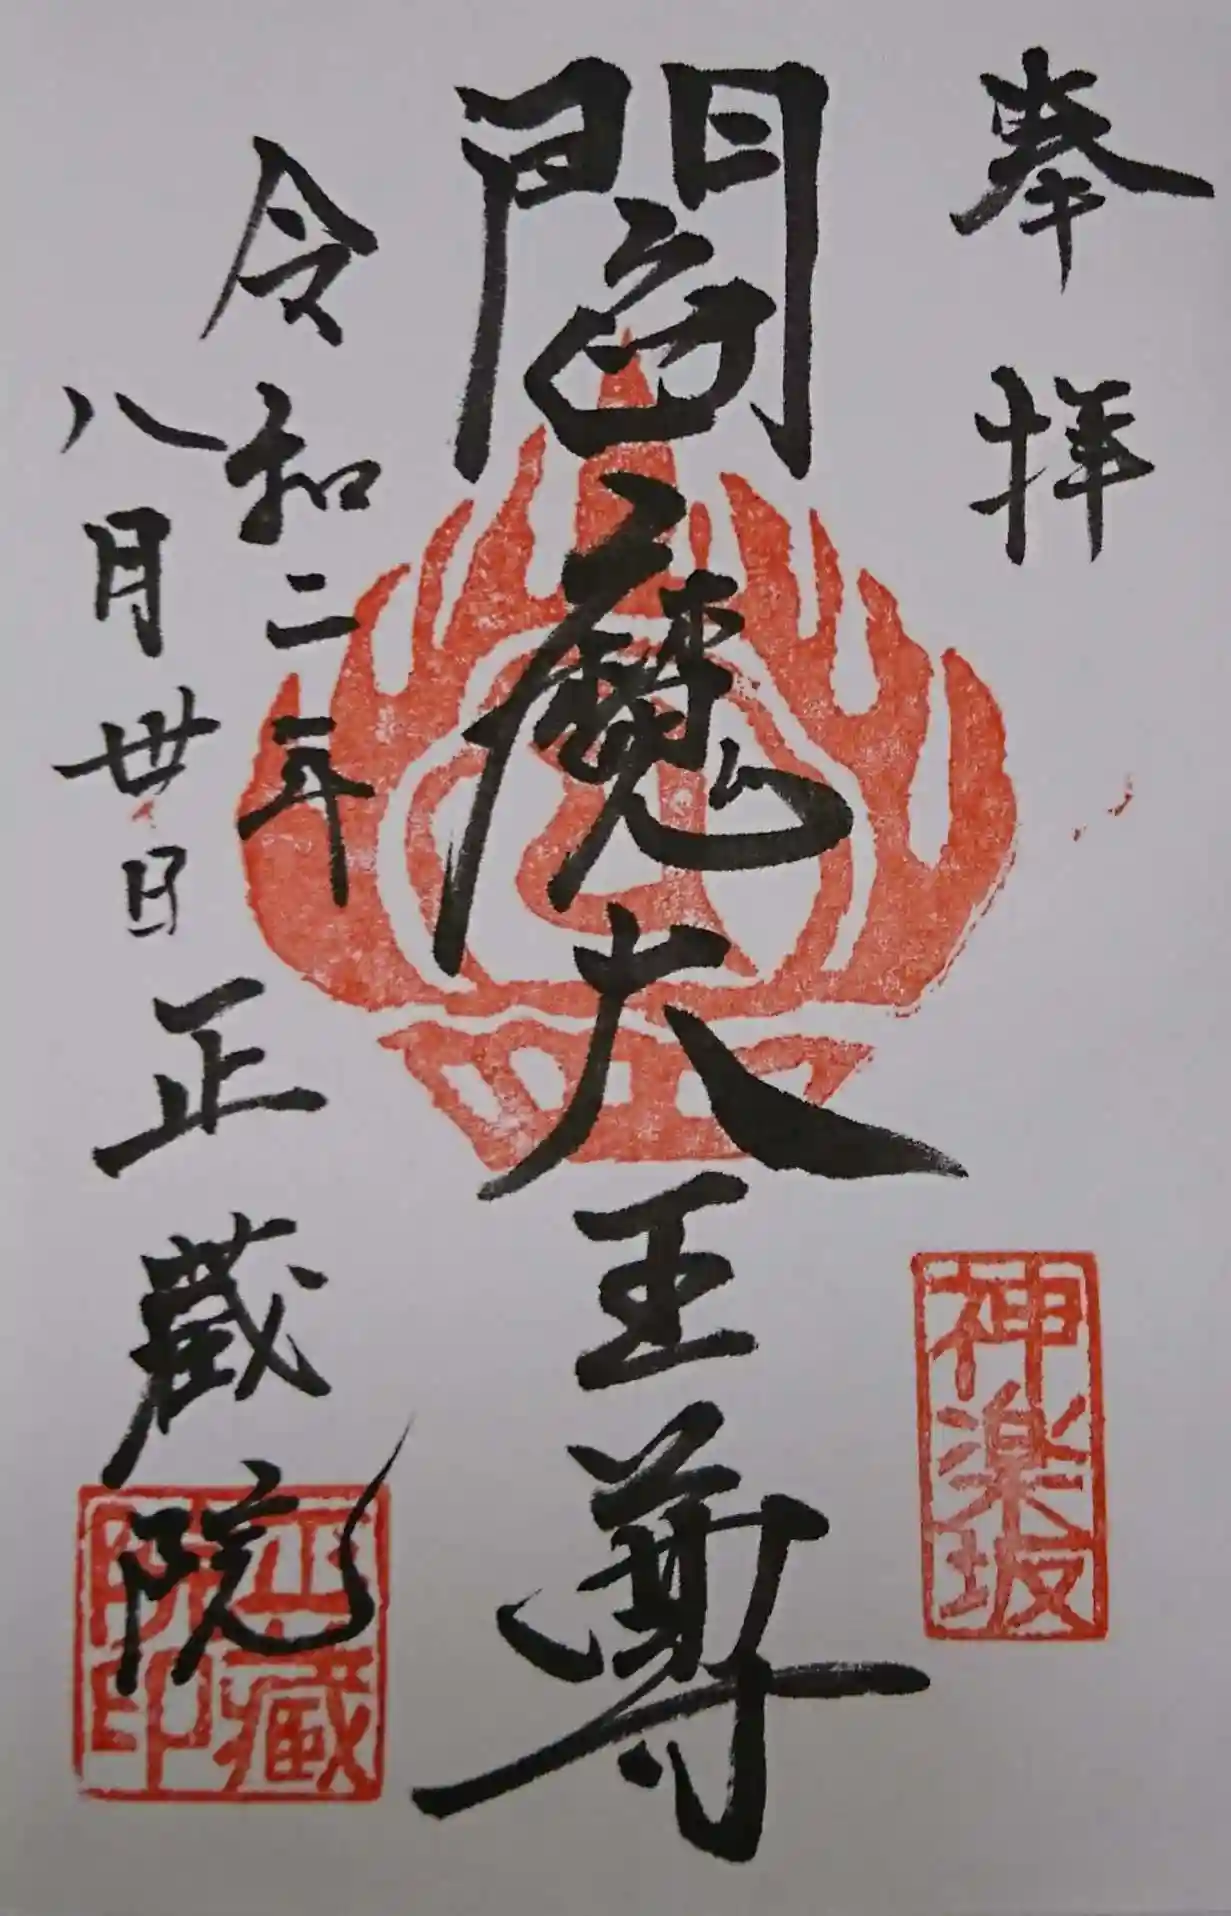 奉拝
神楽坂
閻魔大王尊
令和二年
八月卅日
正蔵院
正蔵院印